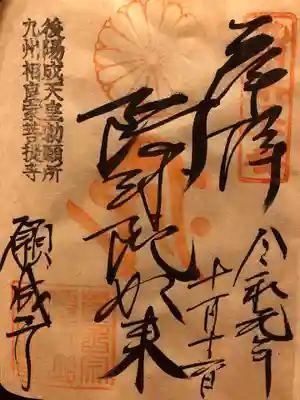 奉拝
令和元年
十一月十一日
阿弥陀如来
後陽成天皇勅願所
九州相良家菩提寺
願成寺